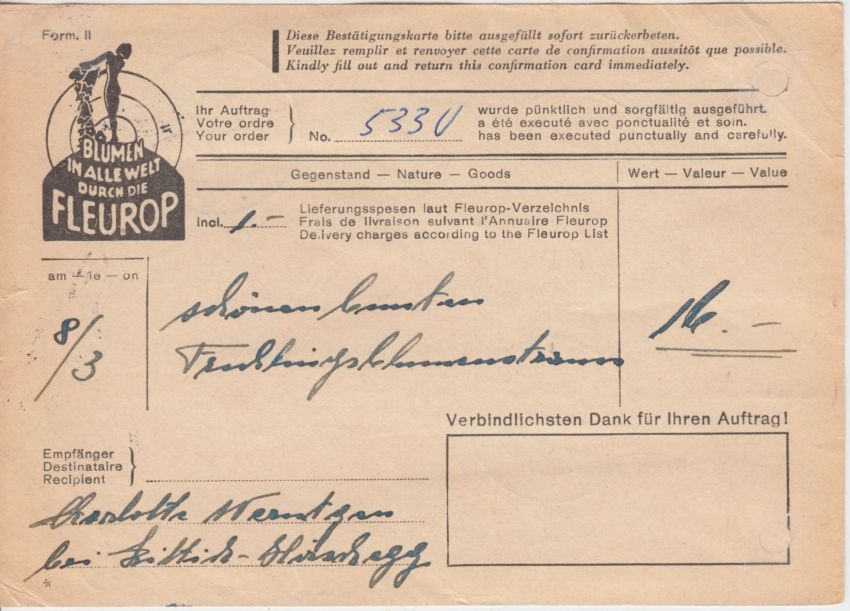 Form. II
Diese Bestätigungskarte bitte ausgefüllt sofort zurückerbeten.
Veuillez remplir et renvoyer cette carte de confirmation aussitôt que possible.
Kindly fill out and return this confirmation card immediately.
BLUMEN
IN ALLE WELT
DURCH DIE
FLEUROP
Ihr Auftrag
Votre ordre
Your order
No. 533U
wurde pünktlich und sorgfältig ausgeführt.
a été executé avec ponctualité et soin.
has been executed punctually and carefully.
Gegenstand — Nature — Goods
Wert — Valeur — Value
Incl. 1.-
Lieferungsspesen laut Fleurop-Verzeichnis
Frais de livraison suivant l'Annuaire Fleurop
Delivery charges according to the Fleurop List
am — le — on
8/3
schönen bunten
Frühlingsblumenstrauss
16.-
Verbindlichsten Dank für Ihren Auftrag!
Empfänger
Destinataire
Recipient
Charlotte
bei Hirschegg